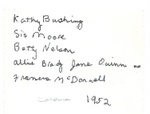 Kathy Bushing
Sis Moore
Betty Nelson
Allie Birdy Jane Quinn
Frances McDonnell
1952